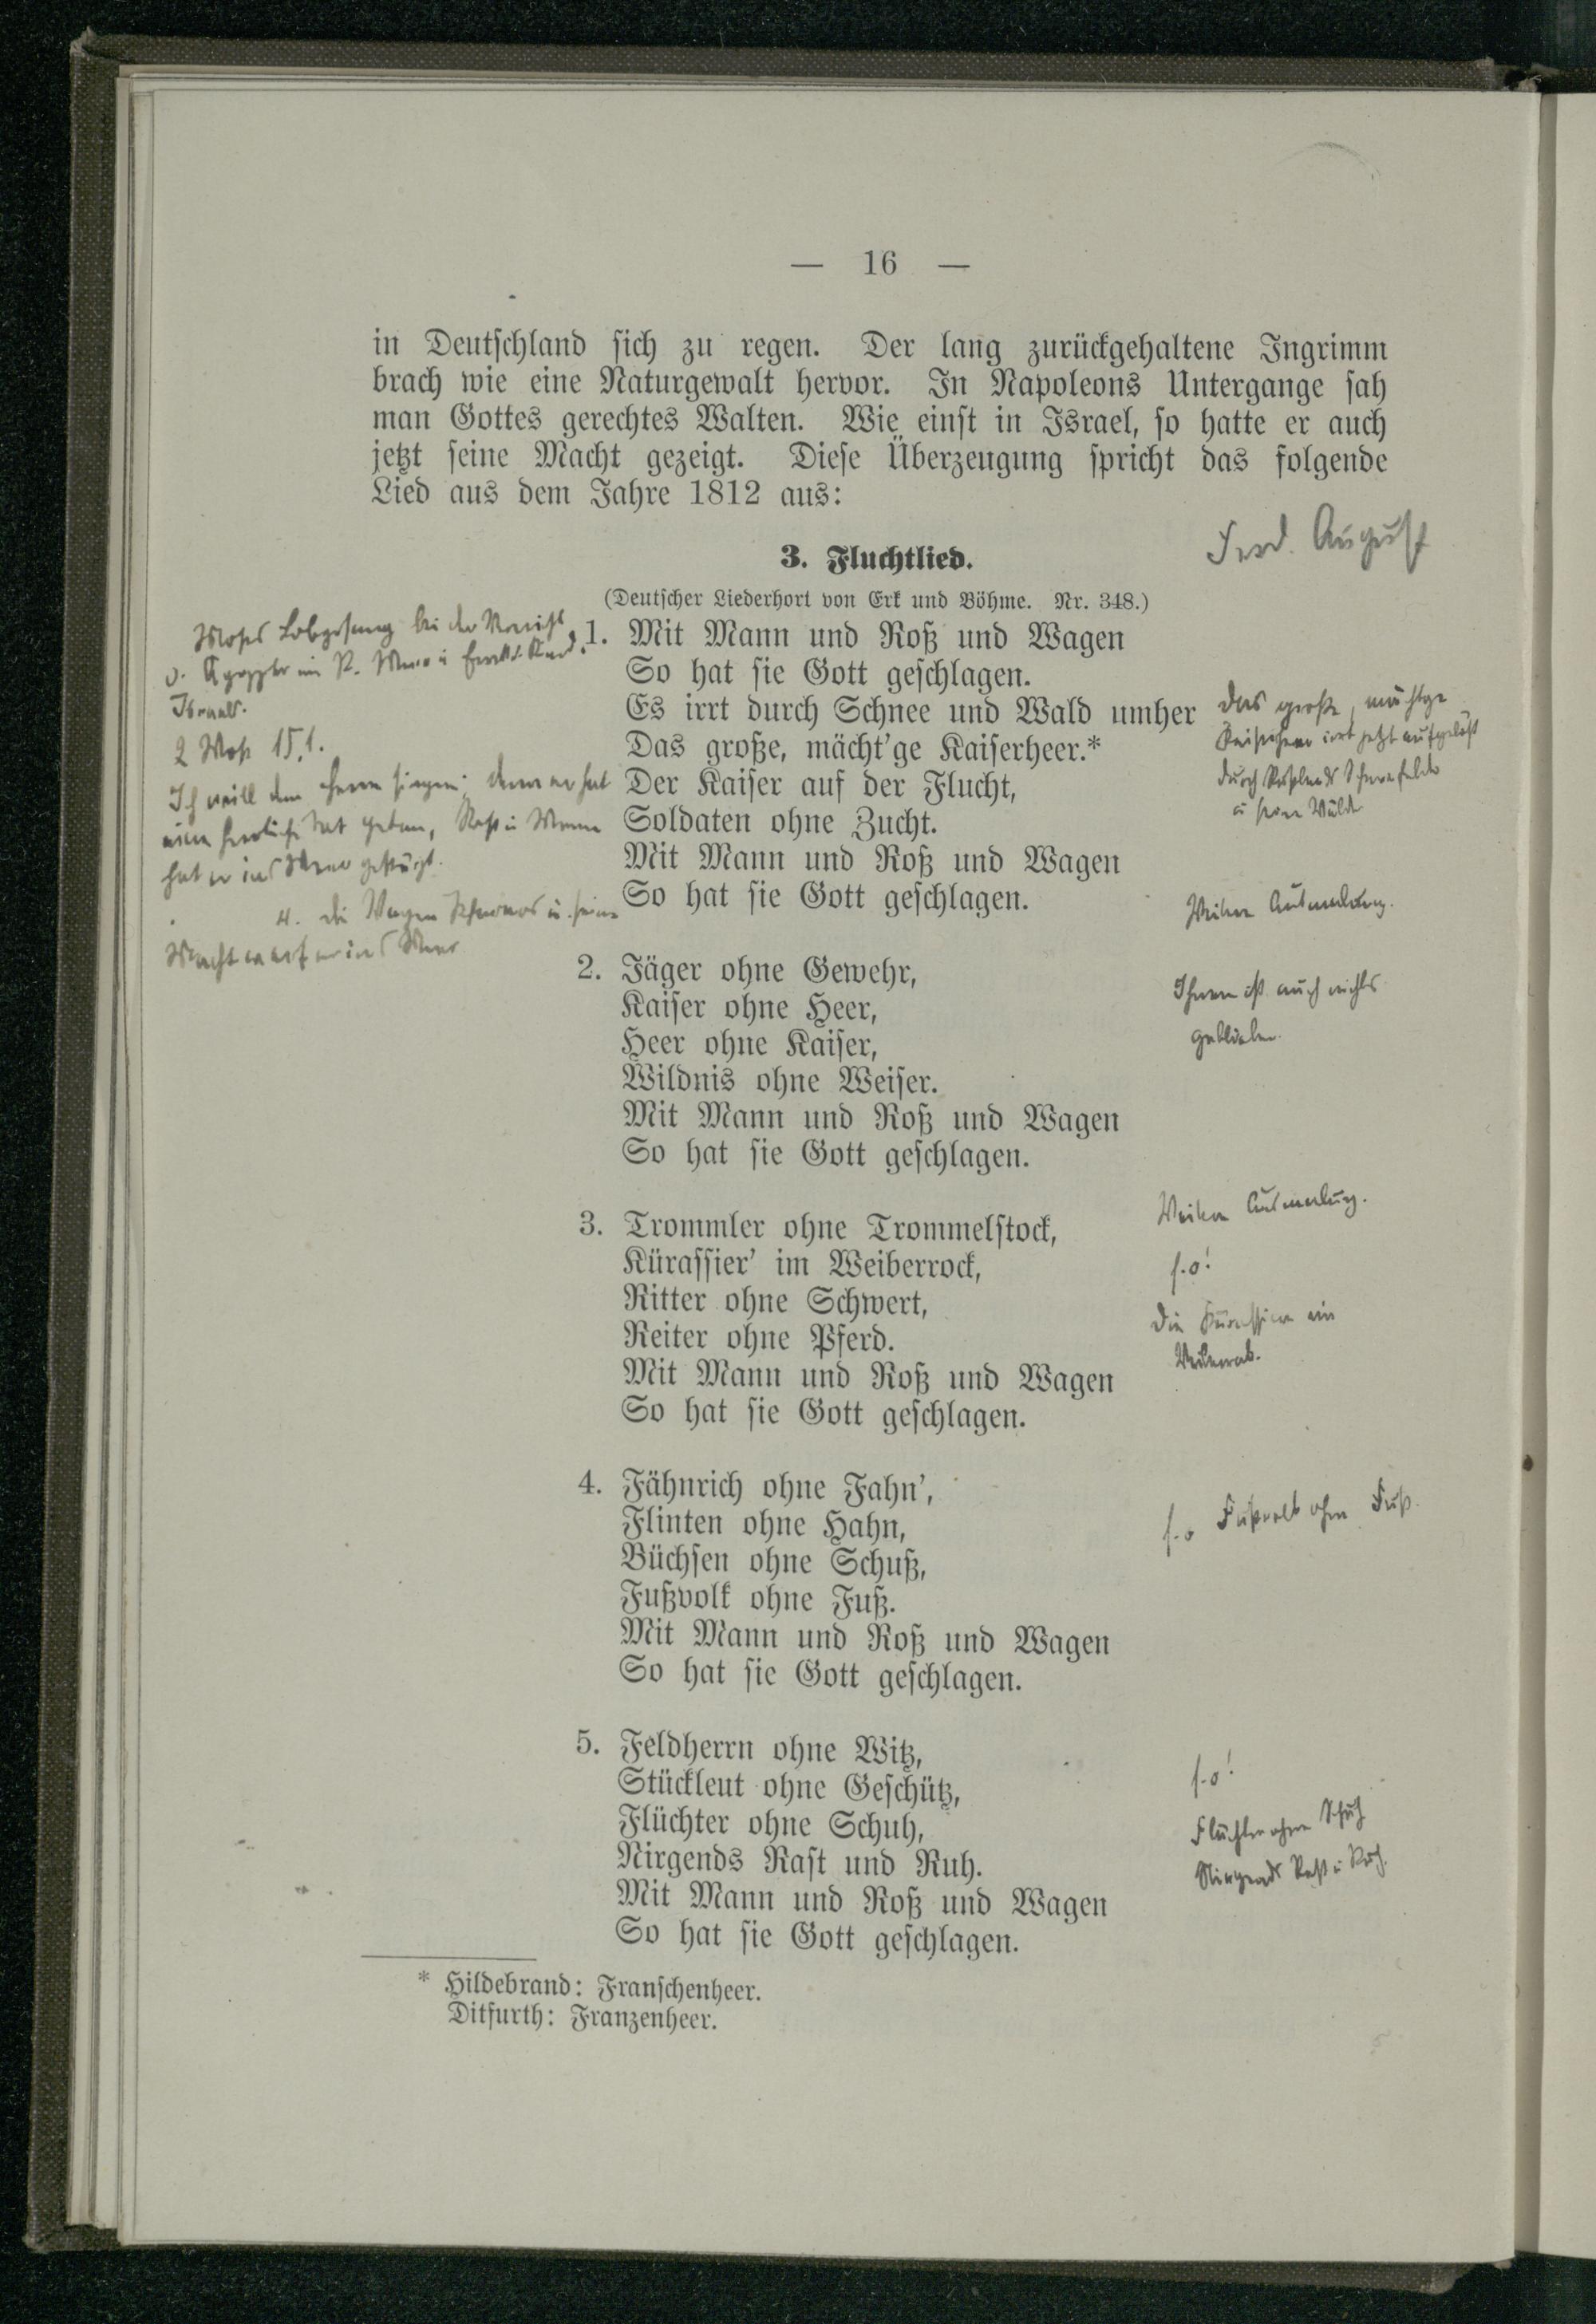 — 16 —
in Deutschland sich zu regen. Der lang zurückgehaltene Ingrimm
brach wie eine Naturgewalt hervor. In Napoleons Untergange sah
man Gottes gerechtes Walten. Wie einst in Israel, so hatte er auch
jetzt seine Macht gezeigt. Diese Überzeugung spricht das folgende
Lied aus dem Jahre 1812 aus:
Ferd. August
3. Fluchtlied.
(Deutscher Liederhort von Erk und Böhme. Nr. 348.)
Moses Lobgesang bei der
v. Ägypter im R. Meer u.
Israels.
2 Mos 15,1.
Ich will dem Herrn singen; denn er hat
eine herrliche Tat getan, Roß u Mann
hat er ins Meer gestürzt.
4. die Wagen Pharaos u. seine
Macht warf er ins Meer
1. Mit Mann und Roß und Wagen
So hat sie Gott geschlagen.
Es irrt durch Schnee und Wald umher
Das große, mächt'ge Kaiserheer.*
Der Kaiser auf der Flucht,
Soldaten ohne Zucht.
Mit Mann und Roß und Wagen
So hat sie Gott geschlagen.
das große, mächtge
Kaiserheer irrt jetzt aufgelöst
durch Rußlands Schneefelder
u seine Wälder
Weitere Ausmalung.
2. Jäger ohne Gewehr,
Kaiser ohne Heer,
Heer ohne Kaiser,
Wildnis ohne Weiser.
Mit Mann und Roß und Wagen
So hat sie Gott geschlagen.
Ihnen ist auch nichts
geblieben.
3. Trommler ohne Trommelstock,
Kürassier' im Weiberrock,
Ritter ohne Schwert,
Reiter ohne Pferd.
Mit Mann und Roß und Wagen
So hat sie Gott geschlagen.
Weitere Ausmalung.
s. o!
Die Kürassiere im
4. Fähnrich ohne Fahn',
Flinten ohne Hahn,
Büchsen ohne Schuß,
Fußvolk ohne Fuß.
Mit Mann und Roß und Wagen
So hat sie Gott geschlagen.
s. o Fußvolk ohne Fuß.
5. Feldherrn ohne Witz,
Stückleut ohne Geschütz,
Flüchter ohne Schuh,
Nirgends Rast und Ruh.
Mit Mann und Roß und Wagen
So hat sie Gott geschlagen.
s. o!
Flüchter ohne Schuh
Nirgends Rast u Ruh.
* Hildebrand: Franschenheer.
Ditfurth: Franzenheer.